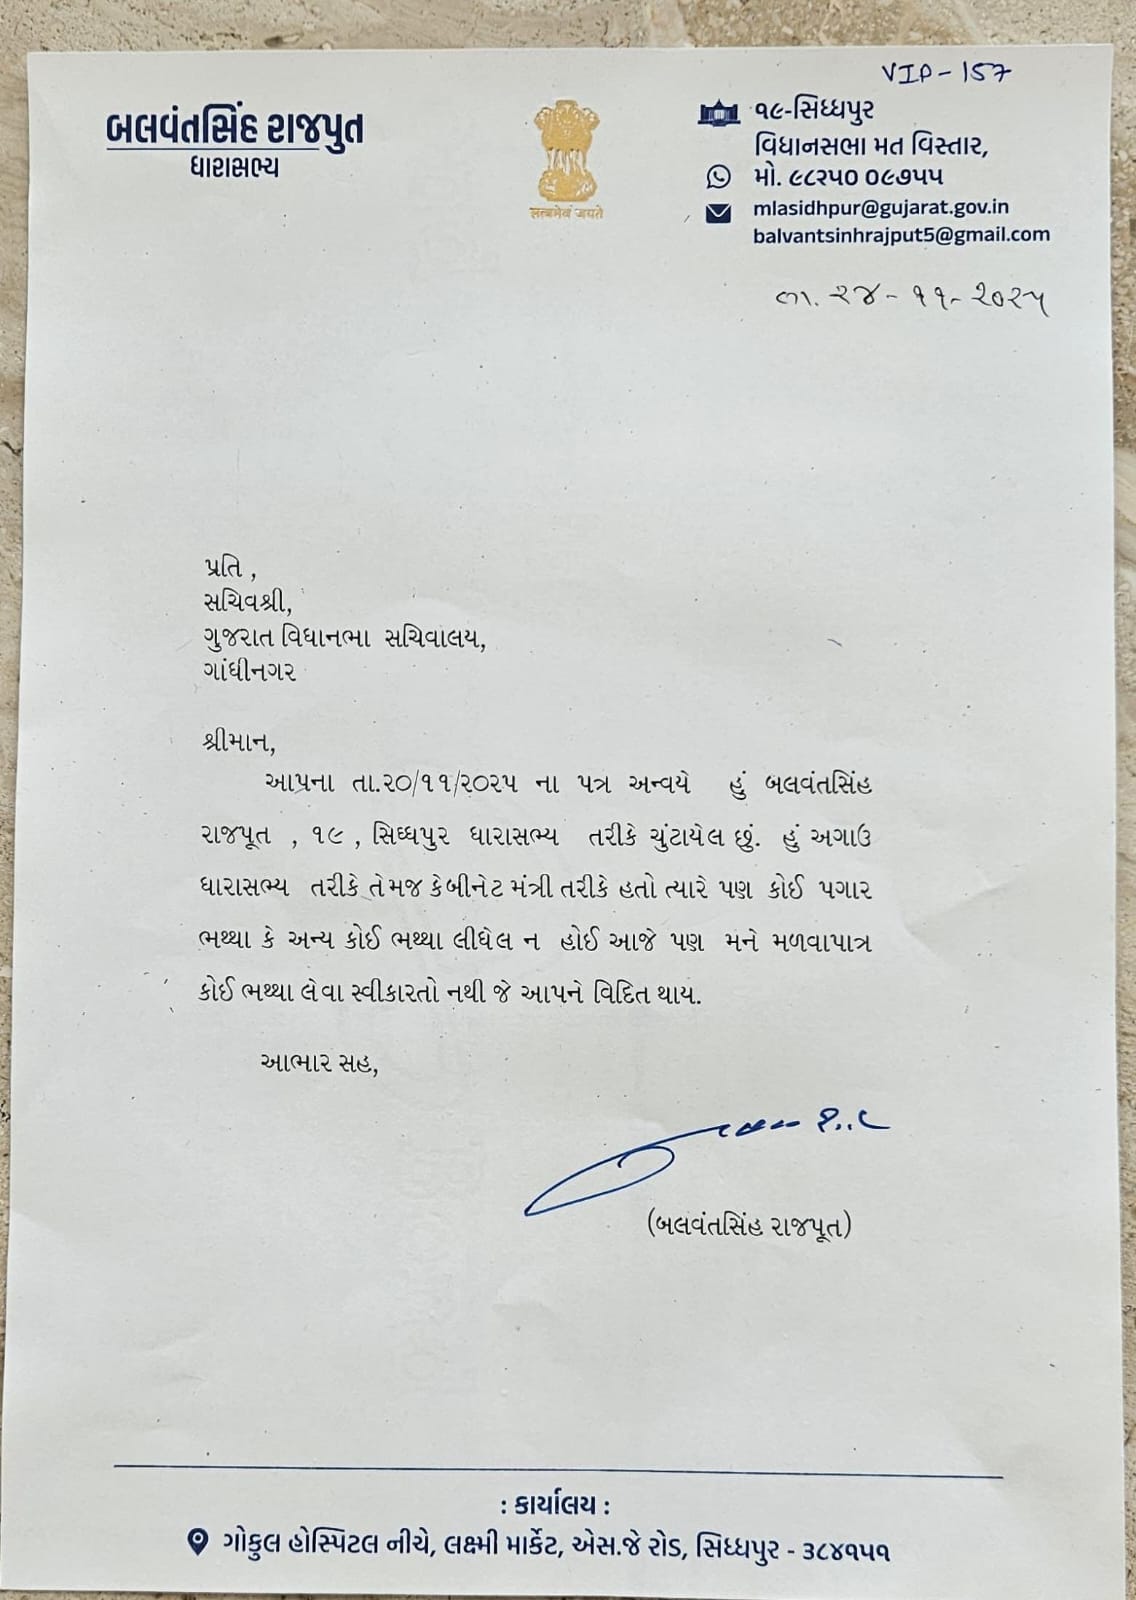 VIP-157
બલવંતસિંહ રાજપુત
ધારાસભ્ય
सत्यमेव जयते
૧૯-સિધ્ધપુર
વિધાનસભા મત વિસ્તાર,
મો. ૯૮૨૫૦ ૦૯૭૫૫
mlasidhpur@gujarat.gov.in
balvantsinhrajput5@gmail.com
તા. ૨૪-૧૧-૨૦૨૫
પ્રતિ ,
સચિવશ્રી,
ગુજરાત વિધાનભા સચિવાલય,
ગાંધીનગર
શ્રીમાન,
આપના તા.૨૦/૧૧/૨૦૨૫ ના પત્ર અન્વયે હું બલવંતસિંહ
રાજપૂત , ૧૯ , સિધ્ધપુર ધારાસભ્ય તરીકે ચુંટાયેલ છું. હું અગાઉ
ધારાસભ્ય તરીકે તેમજ કેબીનેટ મંત્રી તરીકે હતો ત્યારે પણ કોઈ પગાર
ભથ્થા કે અન્ય કોઈ ભથ્થા લીધેલ ન હોઈ આજે પણ મને મળવાપાત્ર
કોઈ ભથ્થા લેવા સ્વીકારતો નથી જે આપને વિદિત થાય.
આભાર સહ,
(બલવંતસિંહ રાજપૂત)
: કાર્યાલય :
ગોકુલ હોસ્પિટલ નીચે, લક્ષ્મી માર્કેટ, એસ.જે રોડ, સિધ્ધપુર - ૩૮૪૧૫૧